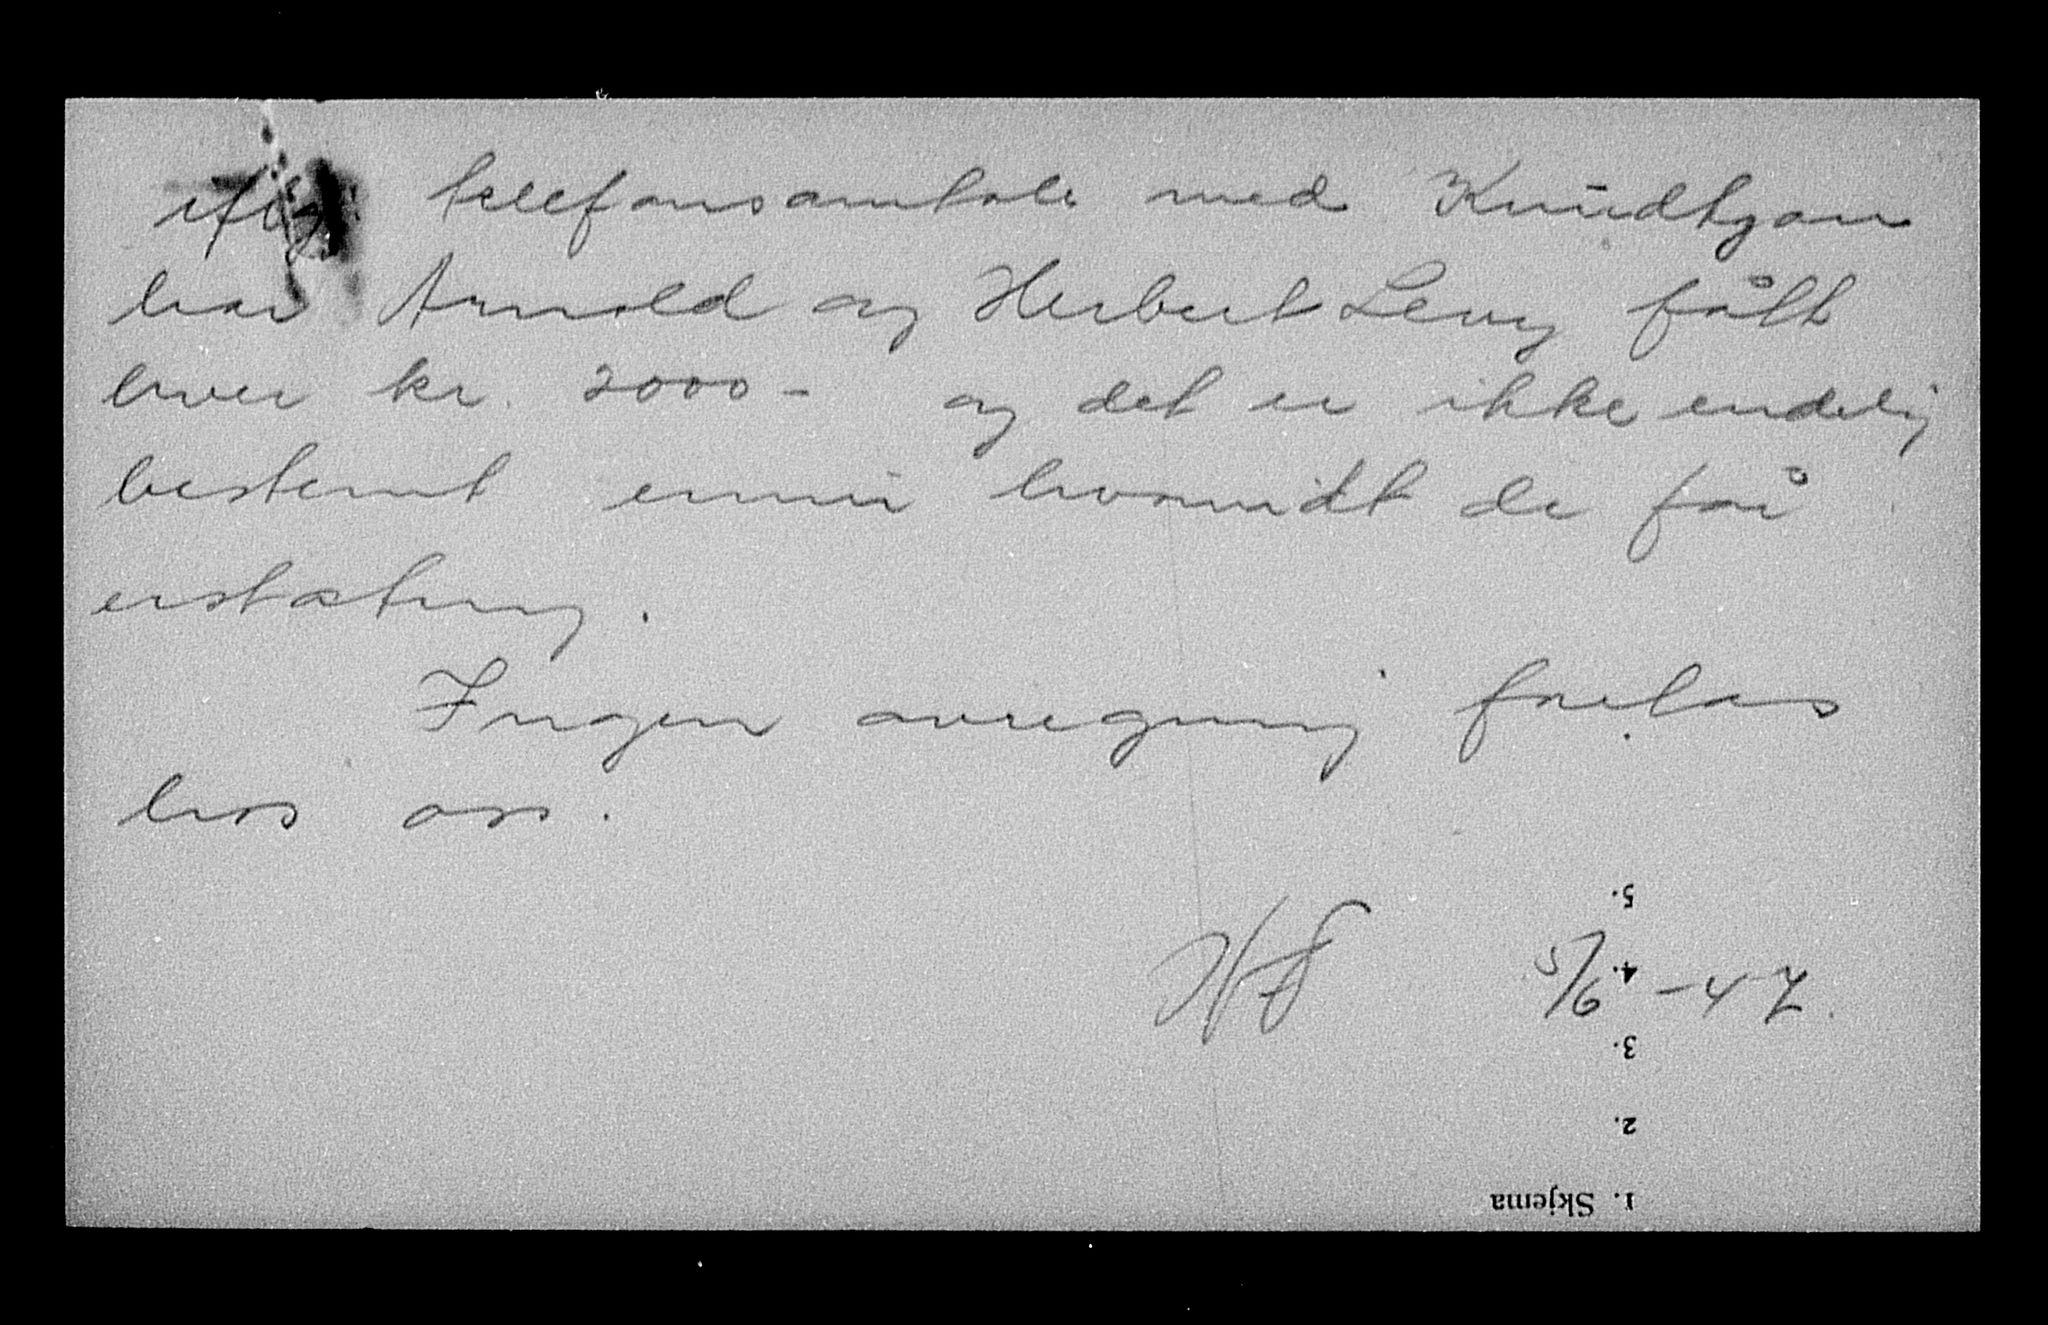 iflg. telefonsamtale med Knudtzon
har Arnold og Herbert Levy fått
hver kr. 2000- og det er ikke endelig
bestemt ennu hvorvidt de får
erstatning.
Ingen avregning forelås
hos oss.
5/6 -47.
5.
4.
3.
2.
1. Skjema